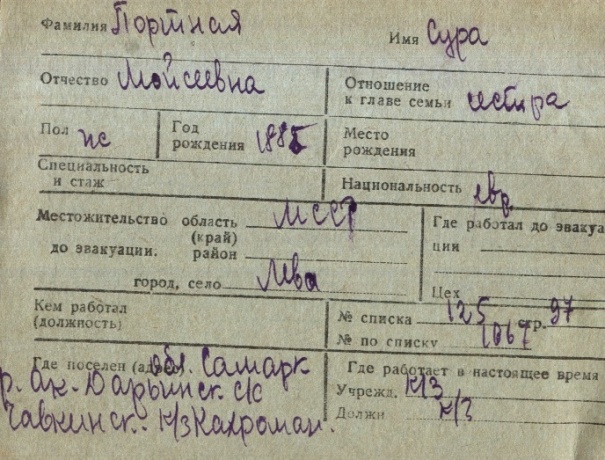 Фамилия Портная Имя Сура
Отчество Мойсеевна Отношение к главе семьи сестра
Пол ж Год рождения 1885 Место рождения
Специальность и стаж Национальность евр.
Местожительство область (край) МССР Где работал до эвакуа
до эвакуации. район ции
город, село Цех
Кем работал (должность) № списка 125 стр. 97
№ по списку 1067
Где поселен (адрес) обл. Самарк Где работает в настоящее время
р. Ак-Дарьинск с/с Учрежд. к/з
к/з Кахроман. Должн к/з